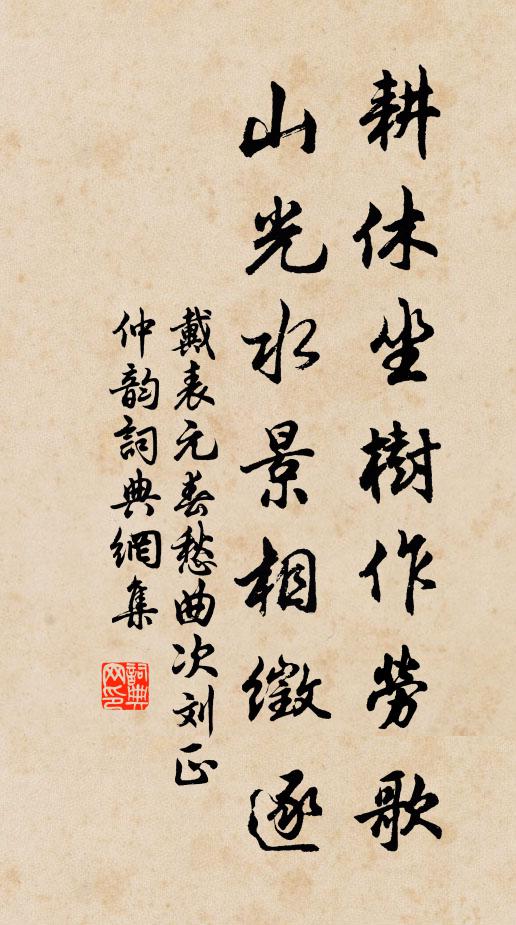 耕休坐樹作勞歌
山光水景相徵逐
戴表元春愁曲次刘正
仲韵詞典網集
詞典
网印